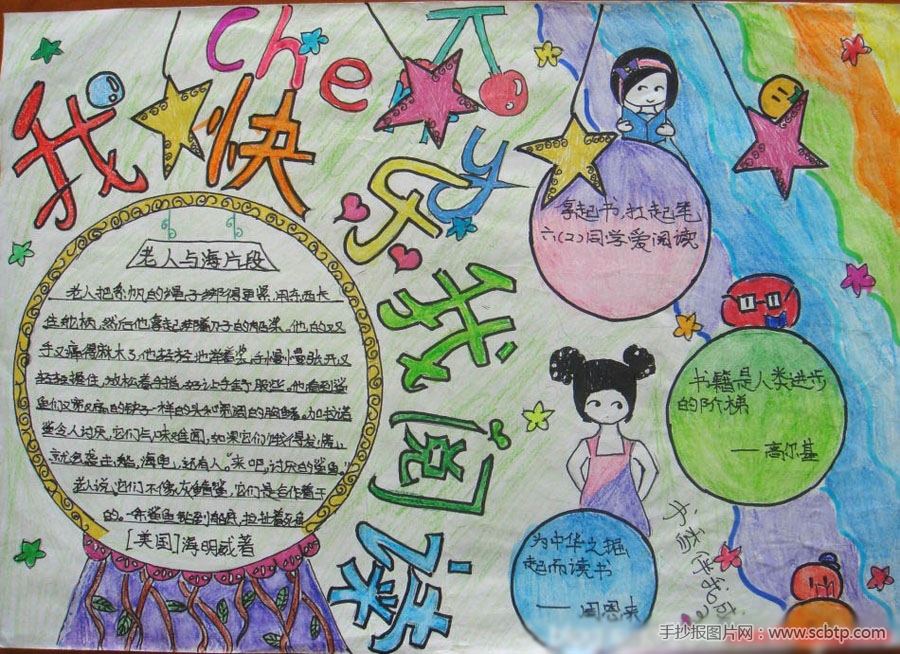 Che
K
我快乐
我阅读
老人与海片段
老人把系帆的绳子绑得更紧,用东西卡
住舵柄,然后他拿起绑着刀子的船桨。他的双
手又痛得麻木了,他轻轻地举着桨,手慢慢张开又
轻轻握住,放松着手指,好让手舒服些。他看到鲨
鱼们又宽又扁的铲子一样的头和宽阔的胸鳍。加拉诺
鲨令人讨厌,它们气味难闻,如果它们饿得发慌,
就会袭击船,海龟,还有人。"来吧,讨厌的鲨鱼"
老人说,它们不像灰鲭鲨,它们是合作着干
的。一条鲨鱼钻到船底,拉扯着死鱼
[美国]海明威著
拿起书,扛起笔
六(2)同学爱阅读
书籍是人类进步
的阶梯
——高尔基
为中华之掘
起而读书
——周恩来
手抄报图片网:www.scbtp.com